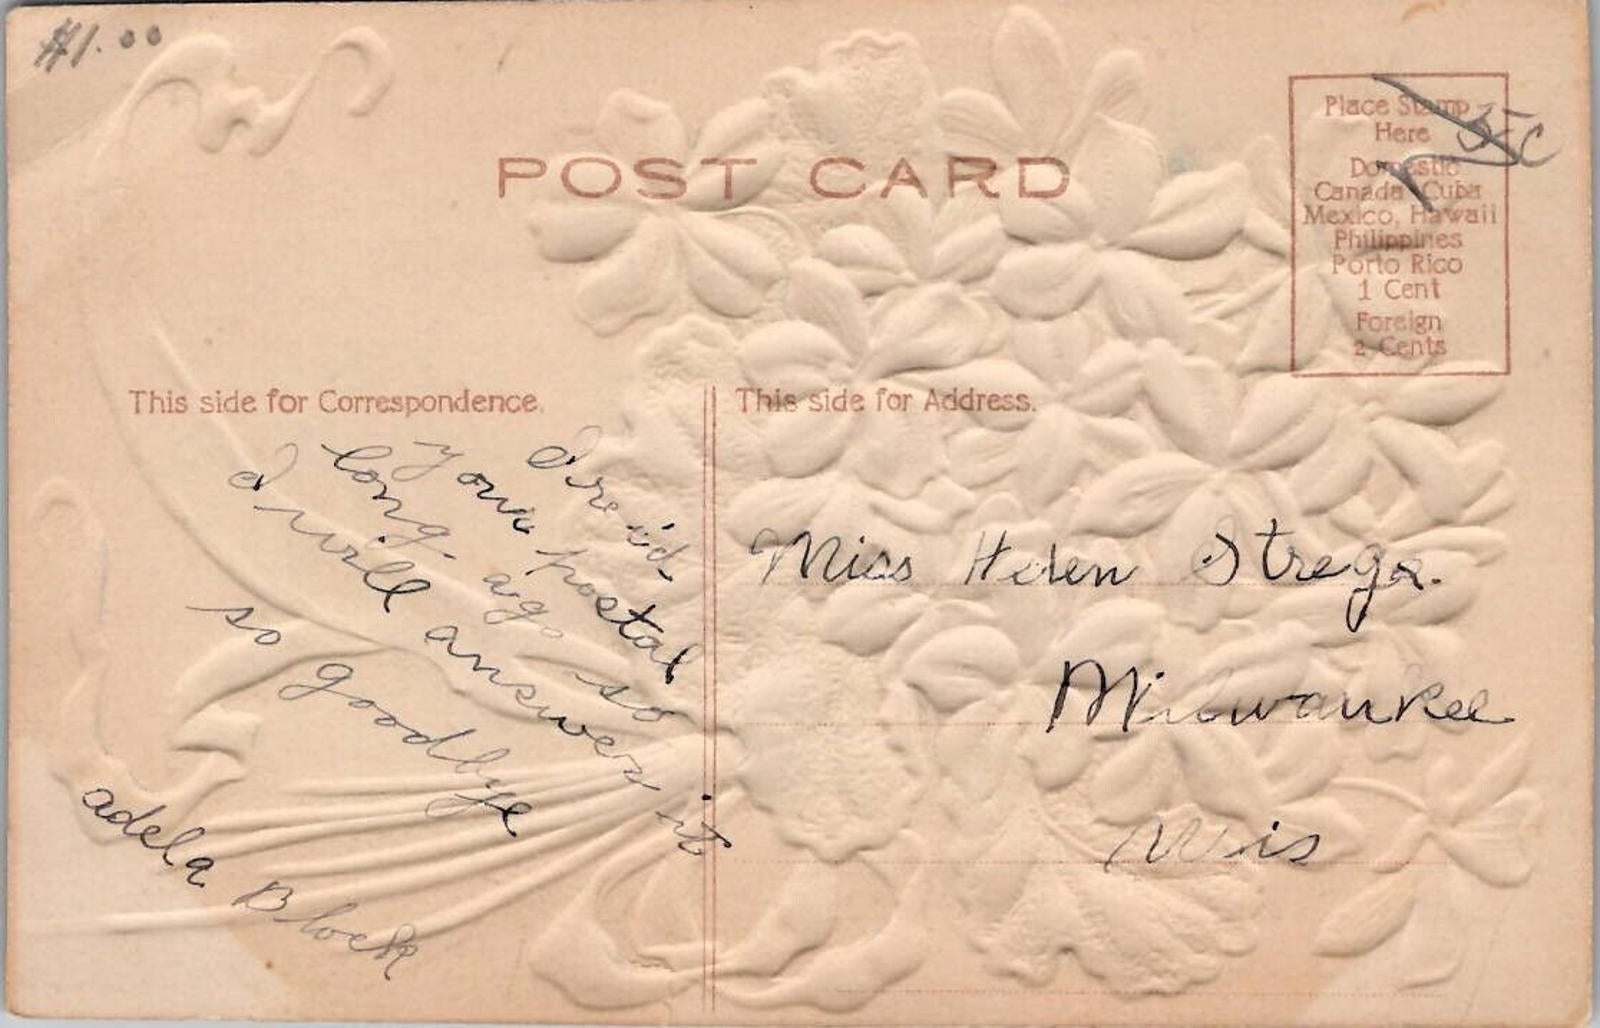 $1.00
POST CARD
Place Stamp
Here
Domestic
Canada, Cuba
Mexico, Hawaii
Philippines
Porto Rico
1 Cent
Foreign
2 Cents
This side for Correspondence.
I re'cd
your postal
long ago so
I will answer it
so goodbye
adela Block
This side for Address.
Miss Helen
Milwaukee
Wis